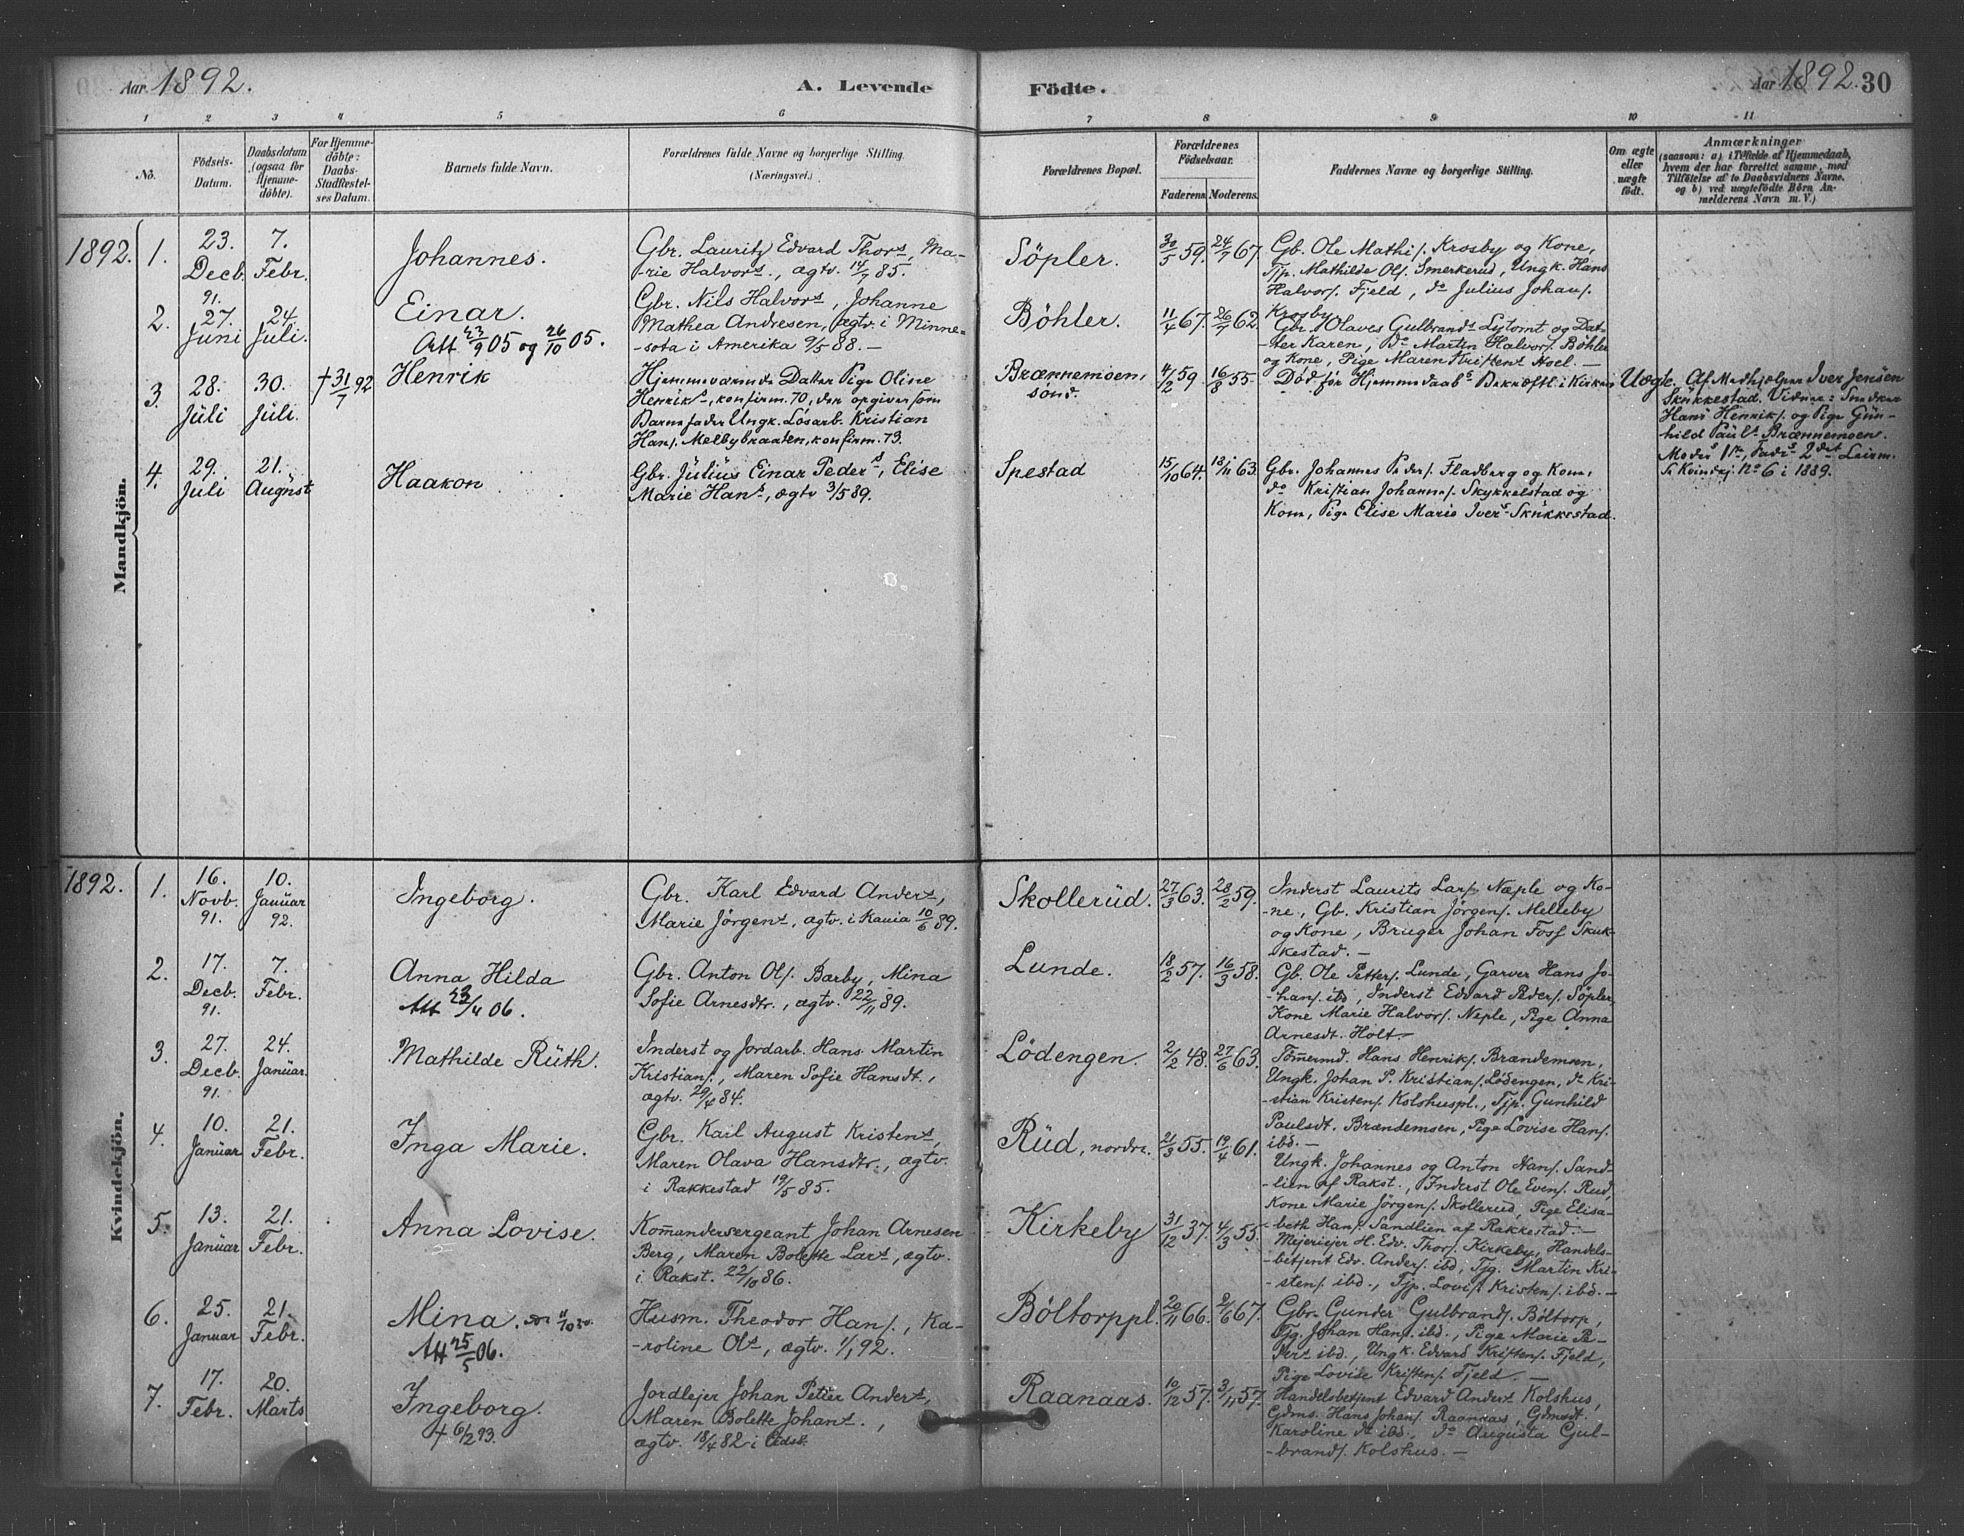 Aar 1892. A. Levende Födte. Aar 1892. 30
1 2 3 4 5 6 7 8 9 10 11
No. Födsels-Datum. Daabsdatum (ogsaa for Hjemmedöbte). For Hjemmedöbte: Daabs-Stadfestelses Datum. Barnets fulde Navn. Forældrenes fulde Navne og borgerlige Stilling. (Næringsvei.) Forældrenes Bopæl. Forældrenes Födselsaar. Faderens. Moderens. Faddernes Navne og borgerlige Stilling. Om ægte eller uægte födt. Anmærkninger
(saasom: a) i Tilfælde af Hjemmedaab, hvem der har forrettet samme, med Tilföielse af to Daabsvidners Navne, og b) ved uægtefödte Börn Anmelderens Navn m. V.)
Mandkjön.
1892. 1. 23. Decb. 91. 7. Febr. Johannes.
Gbr. Lauritz Edvard Thors, Ma-
rie Halvors., ægtv. 14/7 85.
Söpler. 30/5 59. 24/7 67.
Gb. Ole Mathis. Krosby og Kone,
Tjp. Mathilde Ols. Smerkerud, Ungk. Hans
Halvors. Fjeld, do Julius Johans.
Krosby
2. 27. Juni 24. Juli. Einar.
Att 23/9 05 og 26/10 05.
Gbr. Nils Halvors, Johanne
Mathea Andresen, ægtv. i Minne-
sota i Amerika 9/5 88. —
Böhler. 11/4 67. 26/7 62.
Gbr. Olaves Gulbrands Lytomt og Dat-
ter Karen, Do Martin Halvors. Böhler
og Kone, Pige Maren Kristens Hoel. —
3. 28. Juli 30. Juli. † 31/7 92 Henrik
Hjemmeværende Datter Pige Oline
Henriks, konfirm. 70, der opgiver som
Barnefader Ungk. Løsarb. Kristian
Hans. Melbybraaten, konfirm. 73.
Brænnemoen, sönd. 4/2 59 16/8 55.
Död för Hjemmedaabs Bekræft. i Kirken
Uægte. Af Medhjælper Iver Jensen
Skukkestad. Vidner: Snedker
Hans Henriks. og Pige Gun-
hild Pauls Brænnemoen.
Moders 1ste, Faders 2det Leierm.
Se Kvindekj. No 6 i 1889.
4. 29. Juli 21. August Haakon
Gbr. Julius Einar Peders, Elise
Marie Hans, ægtv 3/5 89.
Spestad 15/10 64. 18/11 63.
Gbr. Johannes Peders. Fladberg og Kone,
do Kristian Johannes. Skykkelstad og
Kone, Pige Elise Marie Ivers Skukkestad.
Kvindekjön.
1892. 1. 16. Novb. 91. 10. Januar 92. Ingeborg.
Gbr. Karl Edvard Anders,
Marie Jörgens, ægtv. i Kania 10/6 89.
Skollerud. 27/3 63. 28/2 59.
Inderst Laurits Lars. Næple og Ko-
ne, Gb. Kristian Jörgens. Melleby
og Kone, Bruger Johan Foss Skuk-
kestad. —
2. 17. Decb. 91. 7. Febr. Anna Hilda
Att 23/4 06.
Gbr. Anton Ols. Barby, Mina
Sofie Arnesdtr., ægtv. 22/11 89.
Lunde. 18/2 57. 16/3 58.
Gb. Ole Petters. Lunde, Garver Hans Jo-
-hans. ibd, Inderst Edvard Peders. Söpler,
Kone Marie Halvors. Neple, Pige Anna
Arnesdt. Holt. —
3. 27. Decb. 91. 24. Januar. Mathilde Ruth.
Inderst og Jordarb. Hans Martin
Kristians., Maren Sofie Hansdt.,
ægtv. 29/6 84.
Lödengen. 2/2 48. 27/6 63.
Tömermd. Hans Henriks. Brændemoen,
Ungk. Johan P. Kristians. Lödengen, do Kri-
-stian Kristens. Kolshuspl., Tjp. Gunhild
Paulsdt. Brændemoen, Pige Lovise Hans.
ibd. —
4. 10. Januar 21. Febr. Inga Marie.
Gbr. Karl August Kristens,
Maren Olava Hansdtr., ægtv.
i Rakkestad 19/5 85.
Rud, nordre. 21/3 55. 19/4 61.
Ungk. Johannes og Anton Hans. Sand-
lien af Rakst., Inderst Ole Evens. Rud,
Kone Marie Jörgens. Skollerud, Pige Elisa-
beth Hans. Sandlien af Rakkestad. —
5. 13. Januar 21. Febr. Anna Lovise.
Komandersergeant Johan Arnesen
Berg, Maren Bolette Lars, ægtv.
i Rakst. 22/10 86.
Kirkeby 31/12 37. 4/3 55.
Mejeriejer H. Edv. Thors. Kirkeby, Handels-
-betjent Edv. Anders. ibd, Tjg. Martin Kri-
-stens. ibd., Tjp. Lovis. Kristens. ibd. —
6. 25. Januar 21. Febr. Mina.
Att 25/5 06.
Husm. Theodor Hans., Ka-
-roline Ols, ægtv. 1/1 92.
Böltorppl. 20/11 66. 2/6 67.
Gbr. Gunder Gulbrands. Böltorp,
Tjg. Johan Hans. ibd., Pige Marie Pe-
ders ibd., Ungk. Edvard Kristens. Fjeld,
Pige Lovise Kristens. Fjeld. —
7. 17. Febr. 20. Marts Ingeborg.
† 6/2 93.
Jordlejer Johan Petter Anders,
Maren Bolette Johans.,
ægtv. 18/4 82 i Eidsb.
Raanaas. 10/12 57. 3/11 57.
Handelsbetjent Edvard Anders Kolshus,
Gdms. Hans Johans. Raanaas, Gdmsdt.
Karoline dt ibd., do Augusta Gul-
-brands. Kolshus. —